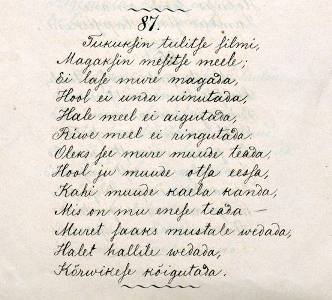 87.
Tukuksin tulitse silmi,
Magaksin mesitse meele;
Ei lase mure magada,
Hool ei unda uinutada,
Hale meel ei aigutada,
Kiwe meel ei ringutada.
Oleks see mure muude teada,
Hool ju muude otsa eessa,
Kahi muude kaela kanda,
Mis on mu enese teada —
Muret saaks mustale wedada,
Halet hallile wedada,
Kõrwikese kõigutada.